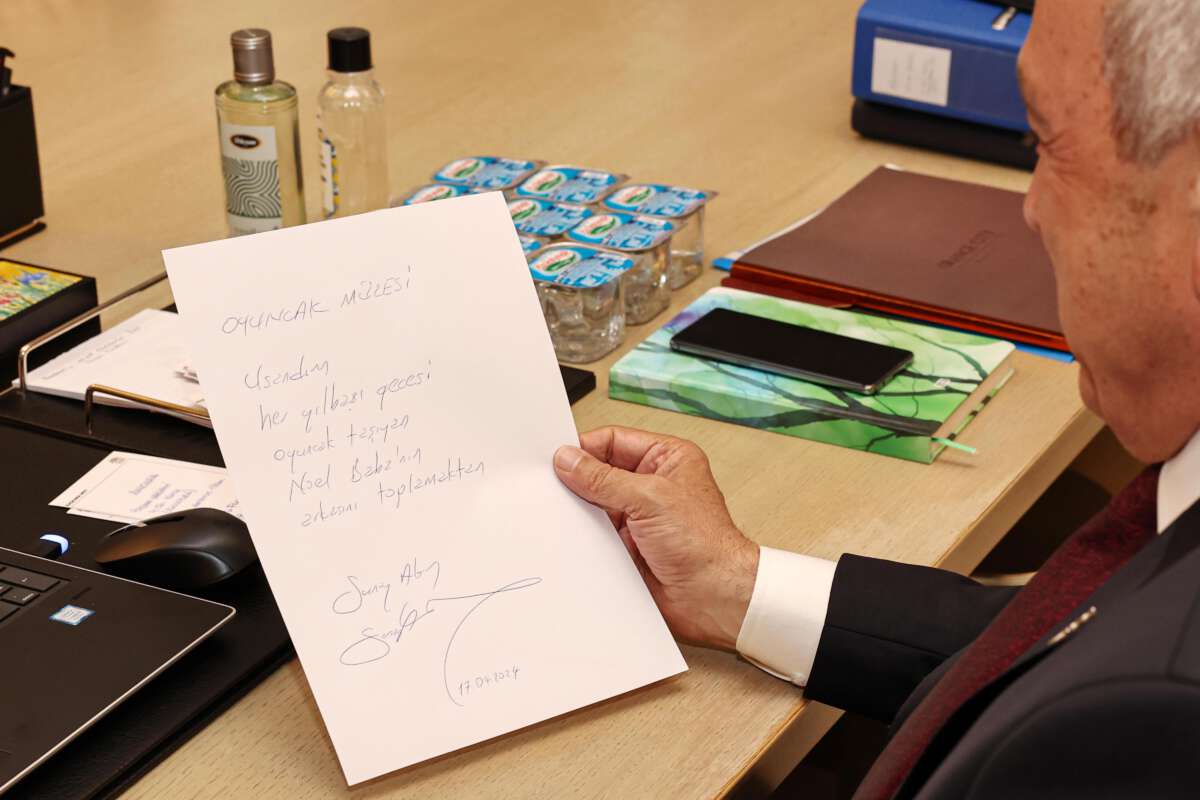 OYUNCAK MÜZESİ
Usandım
her yılbaşı gecesi
oyuncak taşıyan
Noel Baba'nın
arkasını toplamaktan
Sunay Akın
17.04.2024